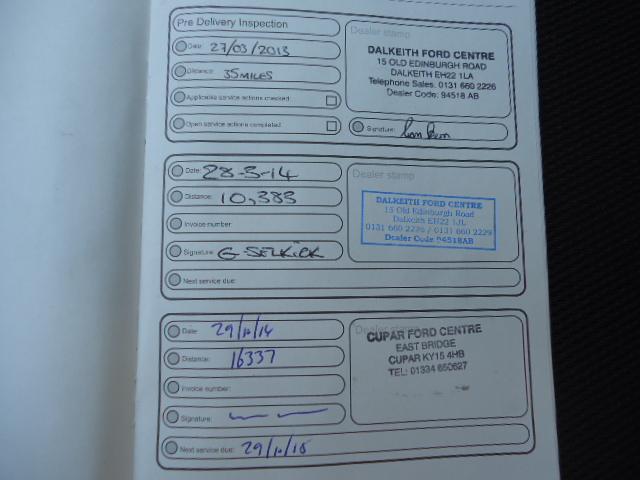 Pre Delivery Inspection
Date: 27/03/2013
Distance: 35 MILES
Applicable service actions checked
Open service actions completed
Dealer stamp
DALKEITH FORD CENTRE
15 OLD EDINBURGH ROAD
DALKEITH EH22 1LA
Telephone Sales: 0131 660 2226
Dealer Code: 94518 AB
Signature:
Date: 28-3-14
Distance: 10,383
Invoice number:
Signature: G SELKICK
Next service due:
Dealer stamp
DALKEITH FORD CENTRE
15 Old Edinburgh Road
Dalkeith EH22 1JL
0131 660 2226 / 0131 660 2229
Dealer Code 94518AB
Date: 29/10/14
Distance: 16337
Invoice number:
Signature:
Next service due: 29/10/15
Dealer stamp
CUPAR FORD CENTRE
EAST BRIDGE
CUPAR KY15 4HB
TEL: 01334 650627